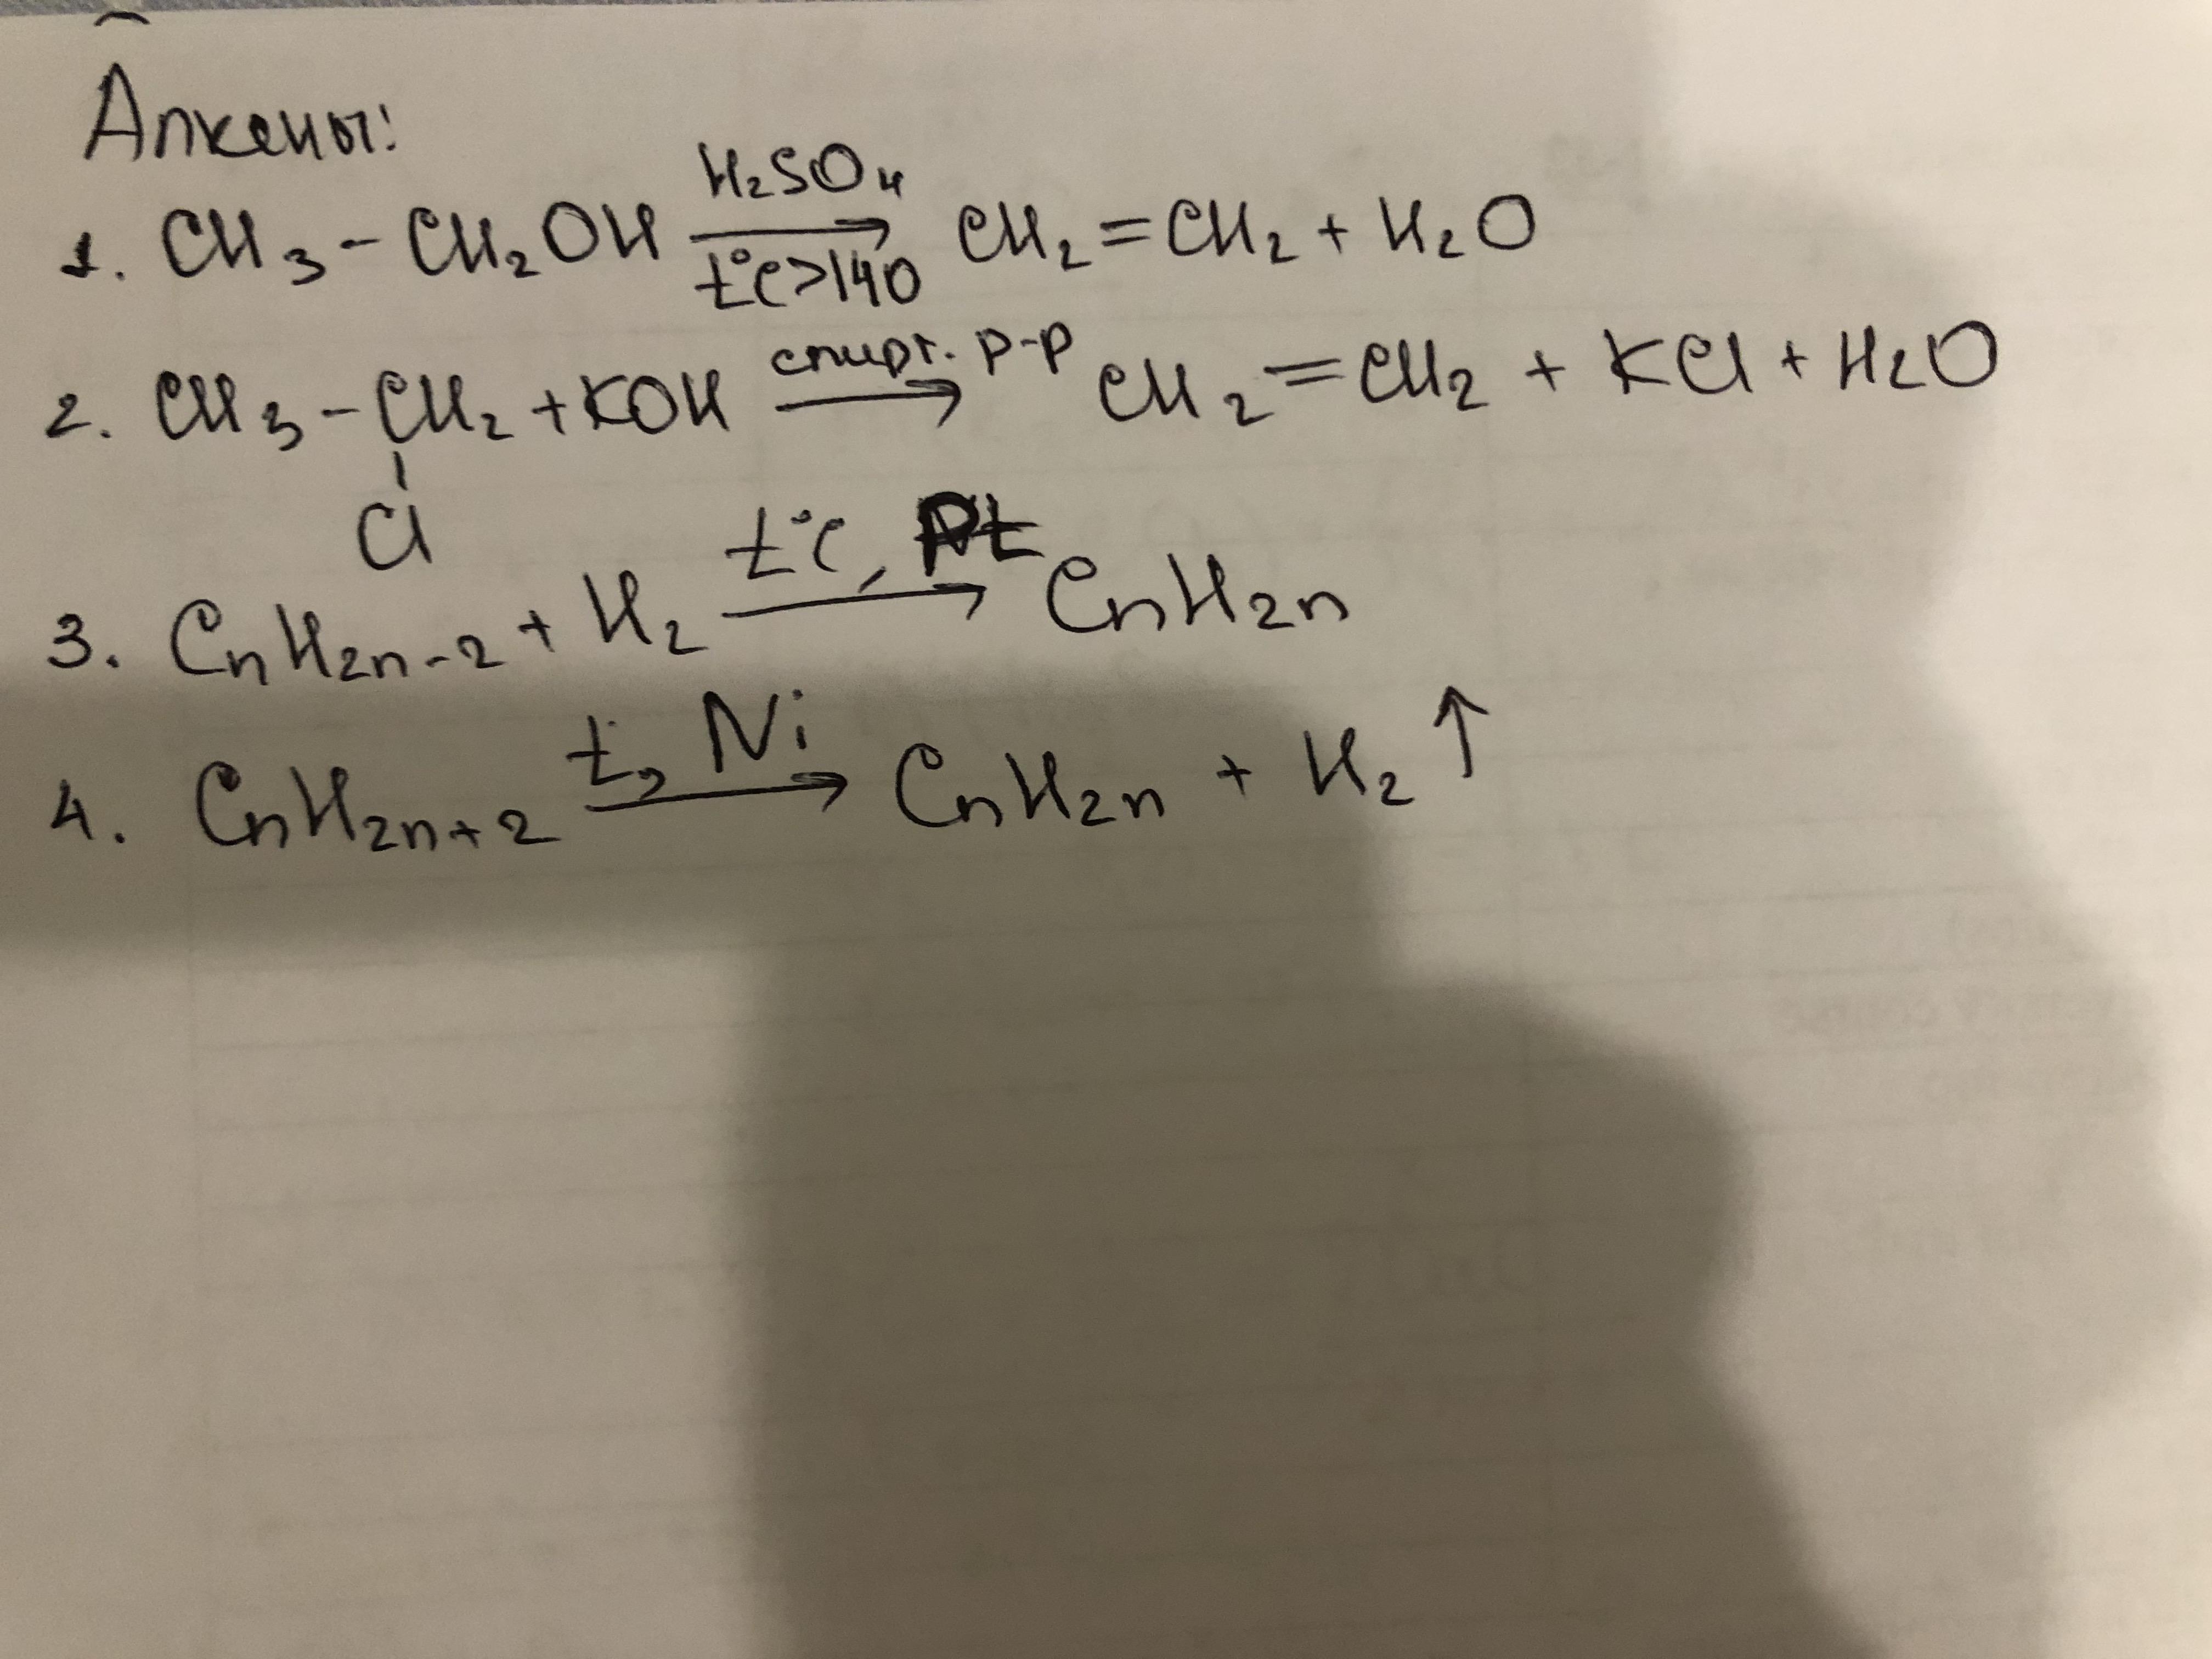 Алкены:
1. CH₃ - CH₂OH H₂SO₄ t°C>140 → CH₂ = CH₂ + H₂O
2. CH₃ - CH₂ + KOH спирт. р-р → CH₂ = CH₂ + KCl + H₂O
Cl
3. CnH₂n-₂ + H₂ t°C, Pt → CnH₂n
4. CnH₂n+₂ t, Ni → CnH₂n + H₂ ↑